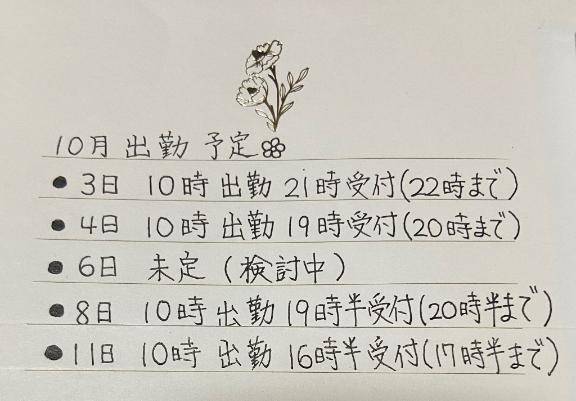 10月 出勤 予定
● 3日 10時 出勤 21時受付(22時まで)
● 4日 10時 出勤 19時受付(20時まで)
● 6日 未定 (検討中)
● 8日 10時 出勤 19時半受付(20時半まで)
● 11日 10時 出勤 16時半受付(17時半まで)